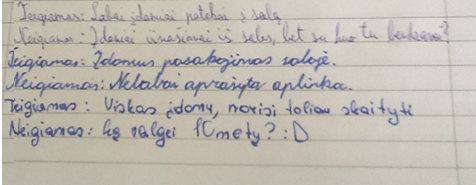 Teigiamas: Labai įdomiai patekai į salą
Neigiama: Įdomiai išėjimai iš salos, bet su kuo tu bendravai?
Teigiamas: Įdomus pasakojimas saloje.
Neigiamas: Nelabai aprašyta aplinka.
Teigiamas: Viskas įdomu, norisi toliau skaityti
Neigiamas: ką valgei metų? :D